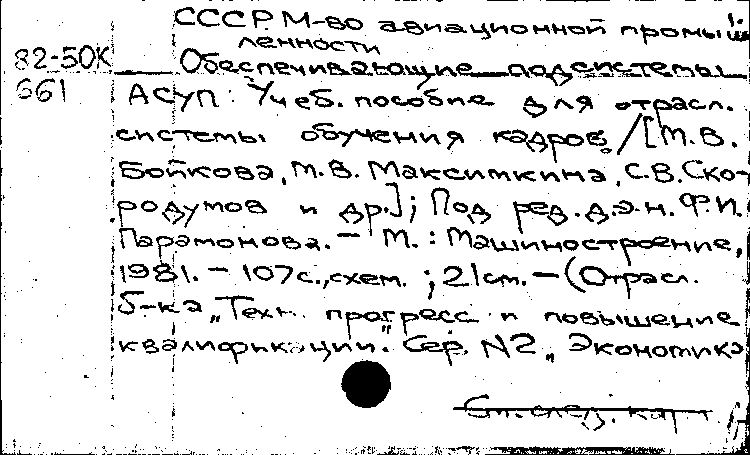 СССР М-во авиационной промыш
ленности
82-50К Обеспечивающие подсистемы
661 АСУП: Учеб. пособие для отрасл.
системы обучения кадров. / [М.В.
Бойкова, М.В. Максимкина, С.В. Ско-
родумов и др.]; Под ред. д.э.н. Ф.И.
Парамонова. - М.: Машиностроение,
1981. - 107 с., схем.; 21 см. - (Отрасл.
б-ка „Техн. прогресс и повышение
квалификации." Сер. N2 „Экономика
См. след. карт